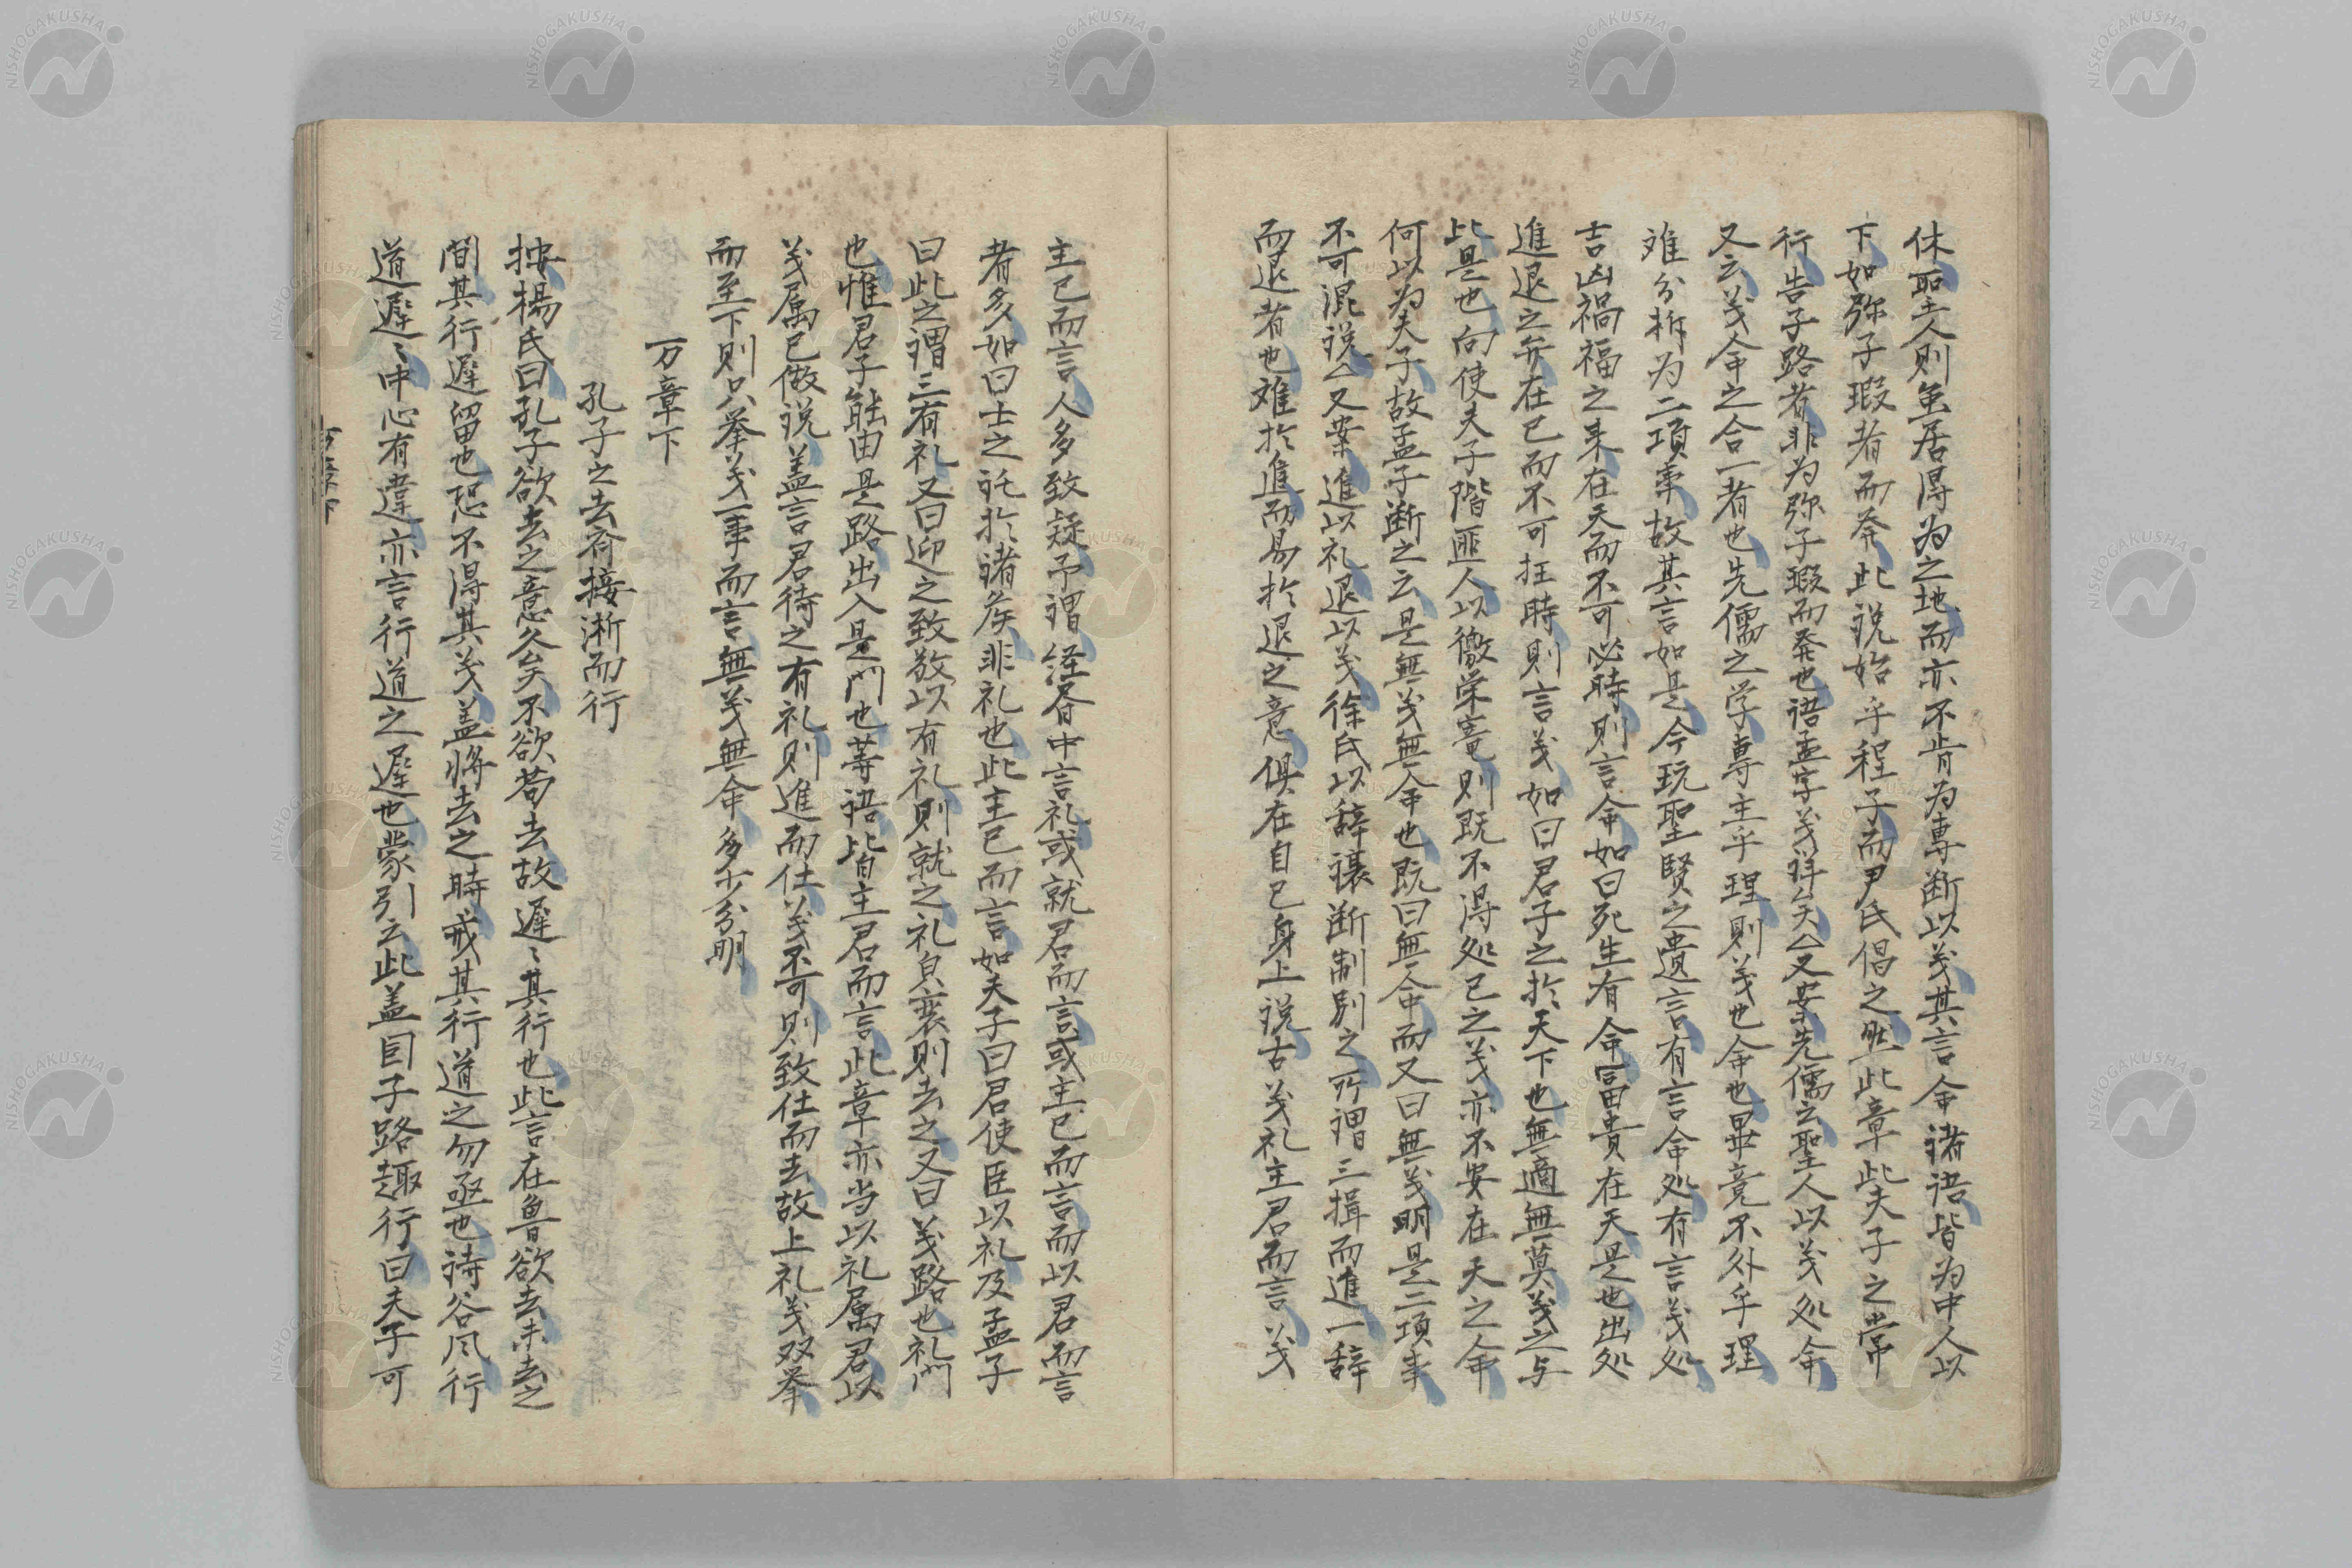 休聖人則虽居得为之地而亦不肯为專断以义其言命诸语皆为中人以
下如弥子瑕者而発此説始乎程子而尹氏倡之然此章此夫子之常
行告子路者非为弥子瑕而発也语孟字义詳矣△又案先儒云聖人以义処命
又云义命之合一者也先儒之学專主乎理則义也命也畢竟不外乎理
难分拆为二項事故其言如是今玩聖賢之遺言有言命処有言义処
吉凶禍福之来在天而不可必時則言命如曰死生有命富貴在天是也出処
進退之弁在已而不可枉時則言义如曰君子之於天下也無適無莫义之与
比是也向使夫子階匪人以徼栄竉則既不得処已之义亦不安在天之命
何以为夫子故孟子断之云是無义無命也既曰無命而又曰無义明是二項事
不可混説△又案進以礼退以义徐氏以辞讓断制別之所谓三揖而進一辞
而退者也难於進而易於退之意俱在自已身上説古义礼主君而言义
主已而言人多致疑予谓経書中言礼或就君而言或主已而言而以君而言
者多如曰士之託於诸矦非礼也此主已而言如夫子曰君使臣以礼及孟子
曰此之谓三有礼又曰迎之致敬以有礼則就之礼貟衰則去之又曰义路也礼門
也惟君子能由是路出入是門也等语皆主君而言此章亦当以礼属君以
义属已做説盖言君待之有礼則進而仕义不可則致仕而去故上礼义双挙
而至下則只挙义一事而言無义無命多少分明
万章下
孔子之去斉接淅而行
按楊氏曰孔子欲去之意久矣不欲苟去故遅〻其行也此言在魯欲去未去之
間其行遅留也恐不得其义盖将去之時戒其行道之勿亟也诗谷风行
道遅〻中心有違亦言行道之遅也蒙引云此盖因子路趣行曰夫子可